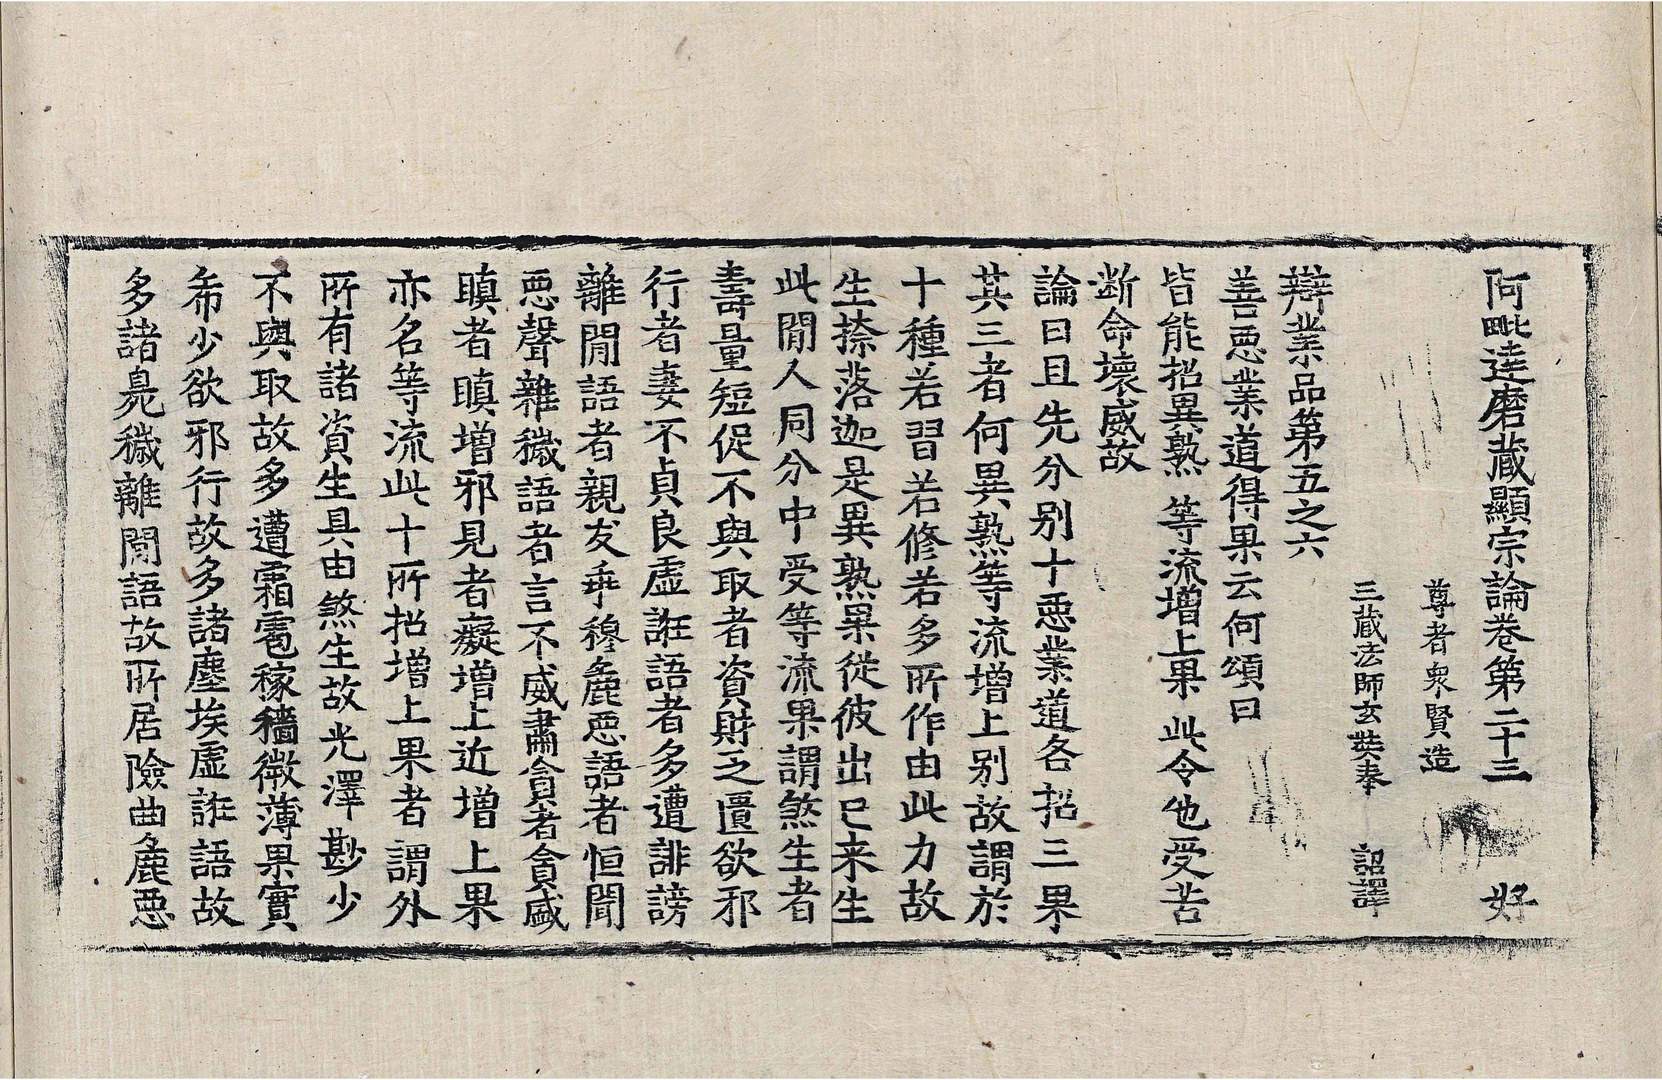 阿毗達磨藏顯宗論卷第二十三 好
尊者衆賢造
三蔵法師玄奘奉 詔譯
辯業品第五之六
善惡業道得果云何頌曰
皆能招異熟 等流增上果 此令他受苦
断命壞威故
論曰且先分别十惡業道各招三果
其三者何異熟等流增上别故謂於
十種若習若修若多所作由此力故
生捺落迦是異熟果從彼出已来生
此閒人同分中受等流果謂煞生者
壽量短促不與取者資財乏匱欲邪
行者妻不貞良虛誑語者多遭誹謗
離閒語者親友乖穆麁惡語者恒聞
惡聲雜穢語者言不威肅貪者貪盛
瞋者瞋增邪見者癡增上近增上果
亦名等流此十所招增上果者謂外
所有諸資生具由煞生故光澤尠少
不與取故多遭霜雹稼穡微薄果實
希少欲邪行故多諸塵埃虛誑語故
多諸臭穢離閒語故所居險曲麁惡